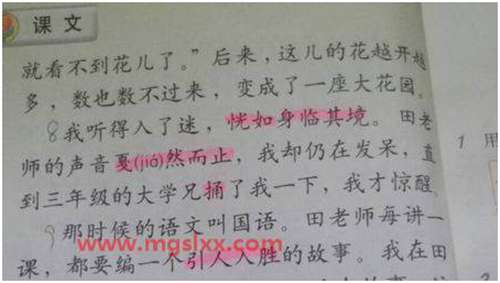 课文
就看不到花儿了。”后来，这儿的花越开越
多，数也数不过来，变成了一座大花园。
8我听得入了迷，恍如身临其境。田老
师的声音戛(jiá)然而止，我却仍在发呆，直
到三年级的大学兄捅了我一下，我才惊醒。
9那时候的语文叫国语。田老师每讲一
www.mgslxx.com
课，都要编一个引人入胜的故事。我在田
1 用